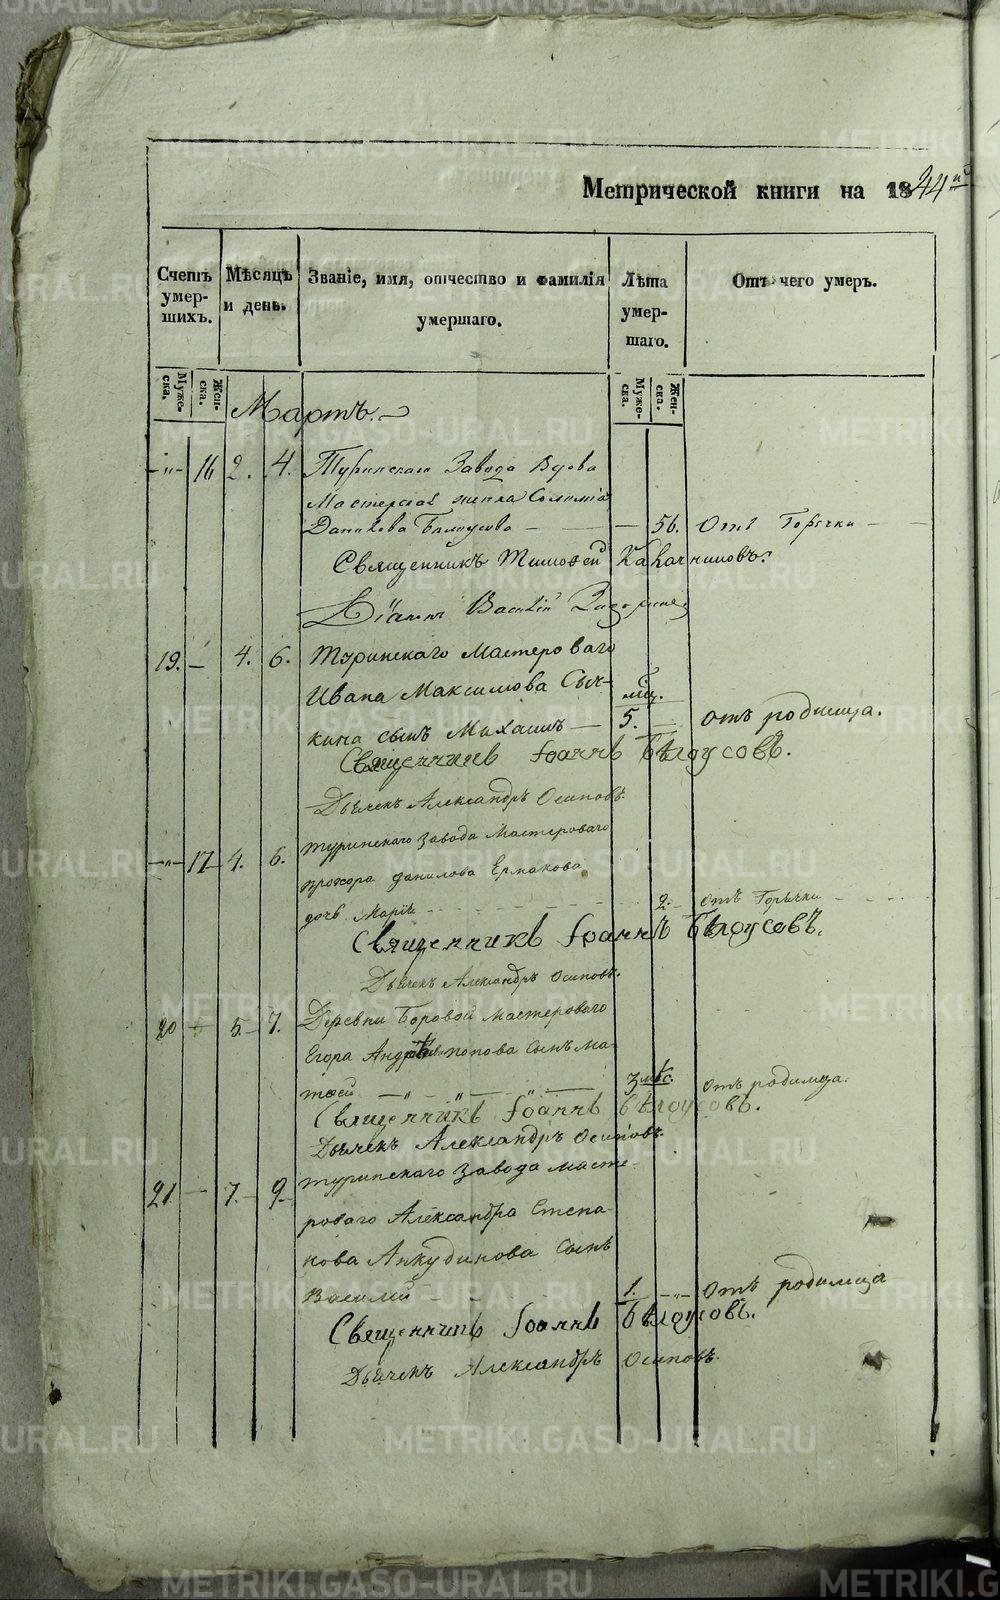 Метрической книги на 1844й
Счетъ умер- шихъ.
Мѣсяцъ и день.
Званіе, имя, отчество и фамилія умершаго.
Лѣта умер- шаго.
Отъ чего умеръ.
Муже- ска.
Жен- ска.
Муже- ска.
Жен- ска.
Мартъ.
16 2. 4. Туринскаго Завода Вдова
Мастерская женка Соломія
Данилова — 56. Отъ Горячки
Священникъ Тимофей
Діаконъ Василій
19. — 4. 6. Туринскаго Мастероваго
Ивана Максимова Сыч-
мѣц.
кина сынъ Михаилъ — 5. — отъ родимца.
Священникъ Іоаннъ Бѣлоусовъ.
Дьячекъ Александръ Осиповъ.
17 4. 6. туринскаго завода Мастероваго
прохора данилова Ермакова
дочь Марія 2. отъ Горячки
Священникъ Іоаннъ Бѣлоусовъ.
Дьячекъ Александръ Осиповъ.
20 — 5. 7. Деревни Боровой мастероваго
Егора Попова сынъ Ма-
тѳей 3 мѣс. отъ родимца.
Священникъ Іоаннъ Бѣлоусовъ.
Дьячекъ Александръ Осиповъ.
21 — 7. 9. туринскаго завода масте-
роваго Александра Степа-
нова Анкудинова Сынъ
Василій 1. Отъ родимца
Священникъ Іоаннъ Бѣлоусовъ.
Дьячекъ Александръ Осиповъ.
METRIKI.GASO-URAL.RU